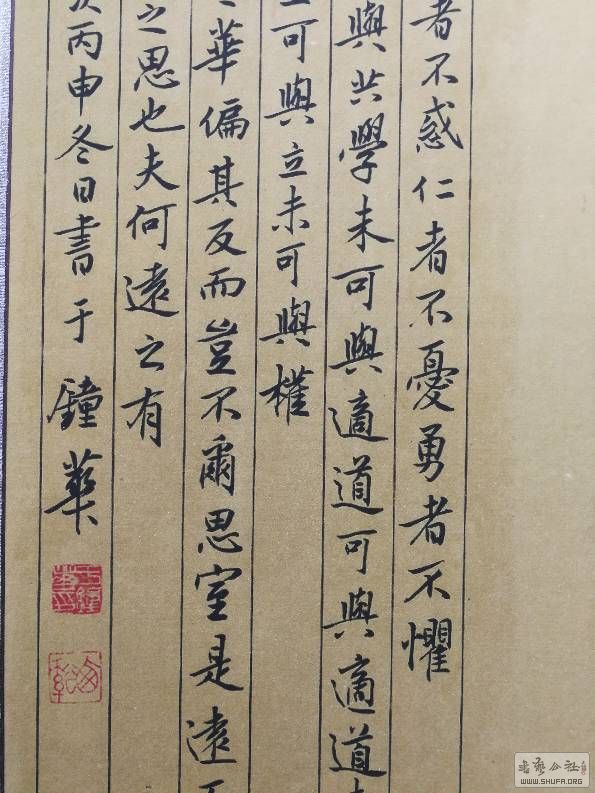 者不惑仁者不憂勇者不懼
與共學未可與適道可與適道
可與立未可與權
華偏其反而豈不爾思室是遠
之思也夫何遠之有
丙申冬日書于鐘華
WWW.SHUFA.ORG